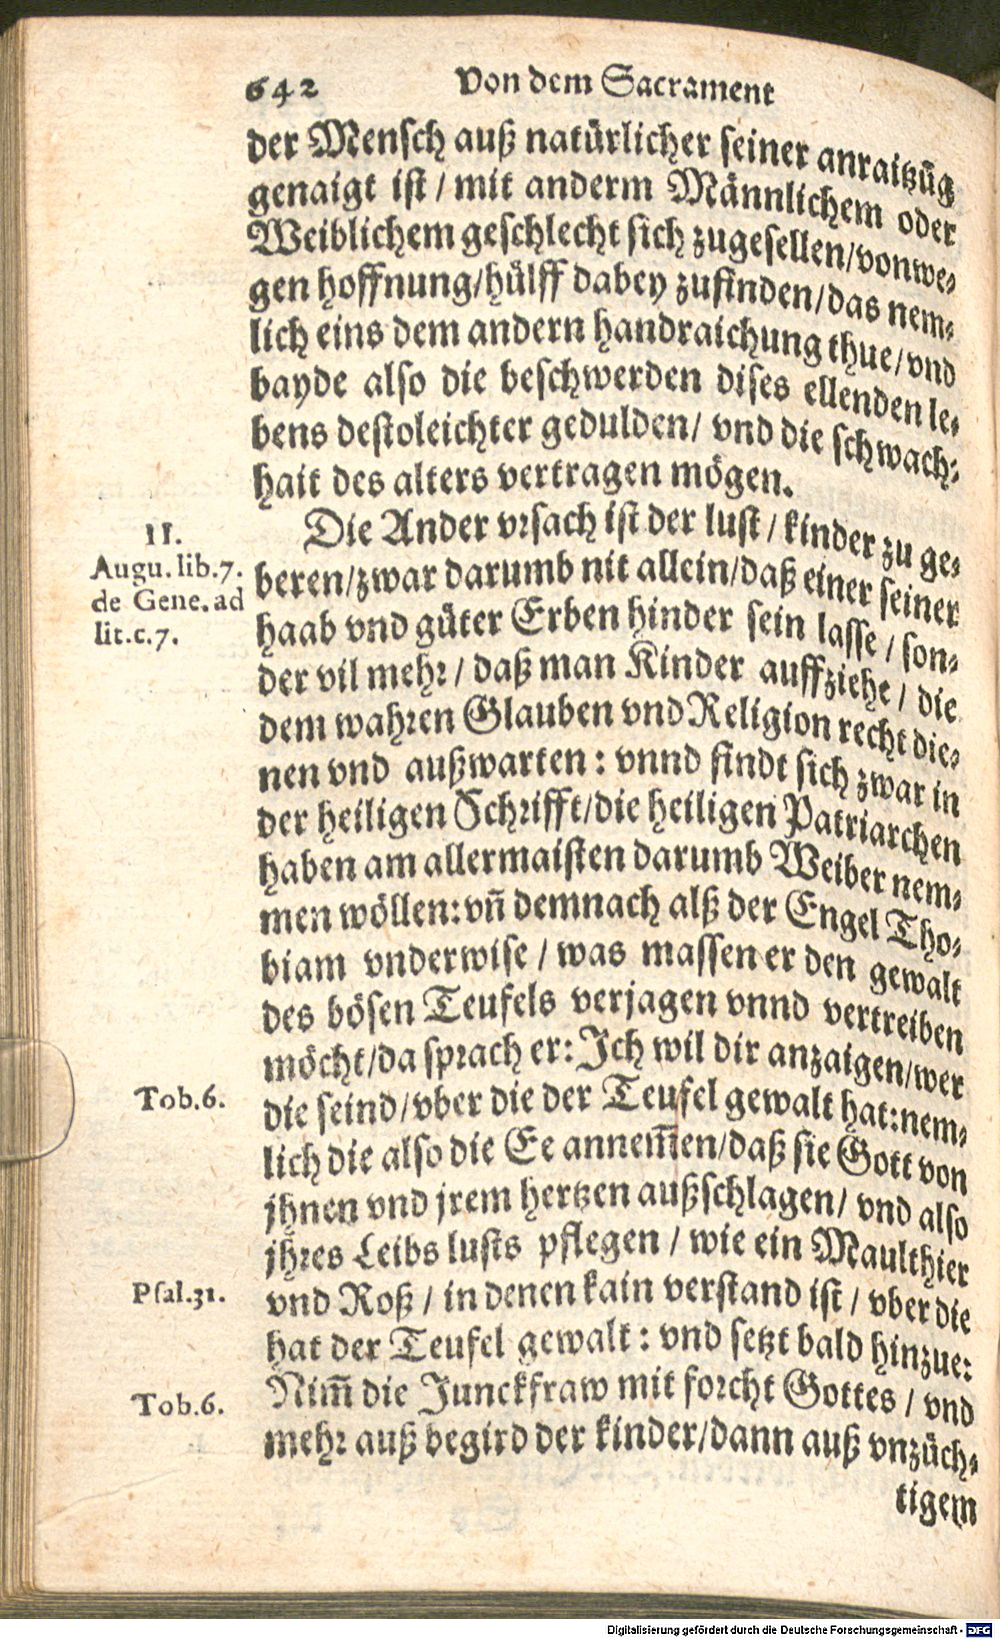 642 Von dem Sacrament
der Mensch auß natürlicher seiner anraitzũg
genaigt ist / mit anderm Männlichem oder
Weiblichem geschlecht sich zugesellen/vonwe⸗
gen hoffnung/hülff dabey zufinden/das nem⸗
lich eins dem andern handraichung thue/vnd
bayde also die beschwerden dises ellenden le⸗
bens destoleichter gedulden/ vnd die schwach⸗
hait des alters vertragen mögen.
II.
Die Ander vrsach ist der lust / kinder zu ge⸗
Augu. lib.7.
de Gene. ad
lit.c.7.
beren/zwar darumb nit allein/daß einer seiner
haab vnd güter Erben hinder sein lasse / son⸗
der vil mehr / daß man Kinder auffziehe / die
dem wahren Glauben vnd Religion recht die⸗
nen vnd außwarten : vnnd findt sich zwar in
der heiligen Schrifft/die heiligen Patriarchen
haben am allermaisten darumb Weiber nem⸗
men wöllen: vñ demnach alß der Engel Tho⸗
biam vnderwise / was massen er den gewalt
des bösen Teufels verjagen vnnd vertreiben
möcht/da sprach er: Ich wil dir anzaigen/wer
Tob.6.
die seind/vber die der Teufel gewalt hat: nem⸗
lich die also die Ee annem̃en/daß sie Gott von
jhnen vnd jrem hertzen außschlagen/ vnd also
jhres Leibs lusts pflegen / wie ein Maulthier
Psal.31.
vnd Roß / in denen kain verstand ist / vber die
hat der Teufel gewalt : vnd setzt bald hinzue:
Tob.6.
Nim̃ die Junckfraw mit forcht Gottes / vnd
mehr auß begird der kinder/dann auß vnzüch⸗
tigem
Digitalisierung gefördert durch die Deutsche Forschungsgemeinschaft - DFG